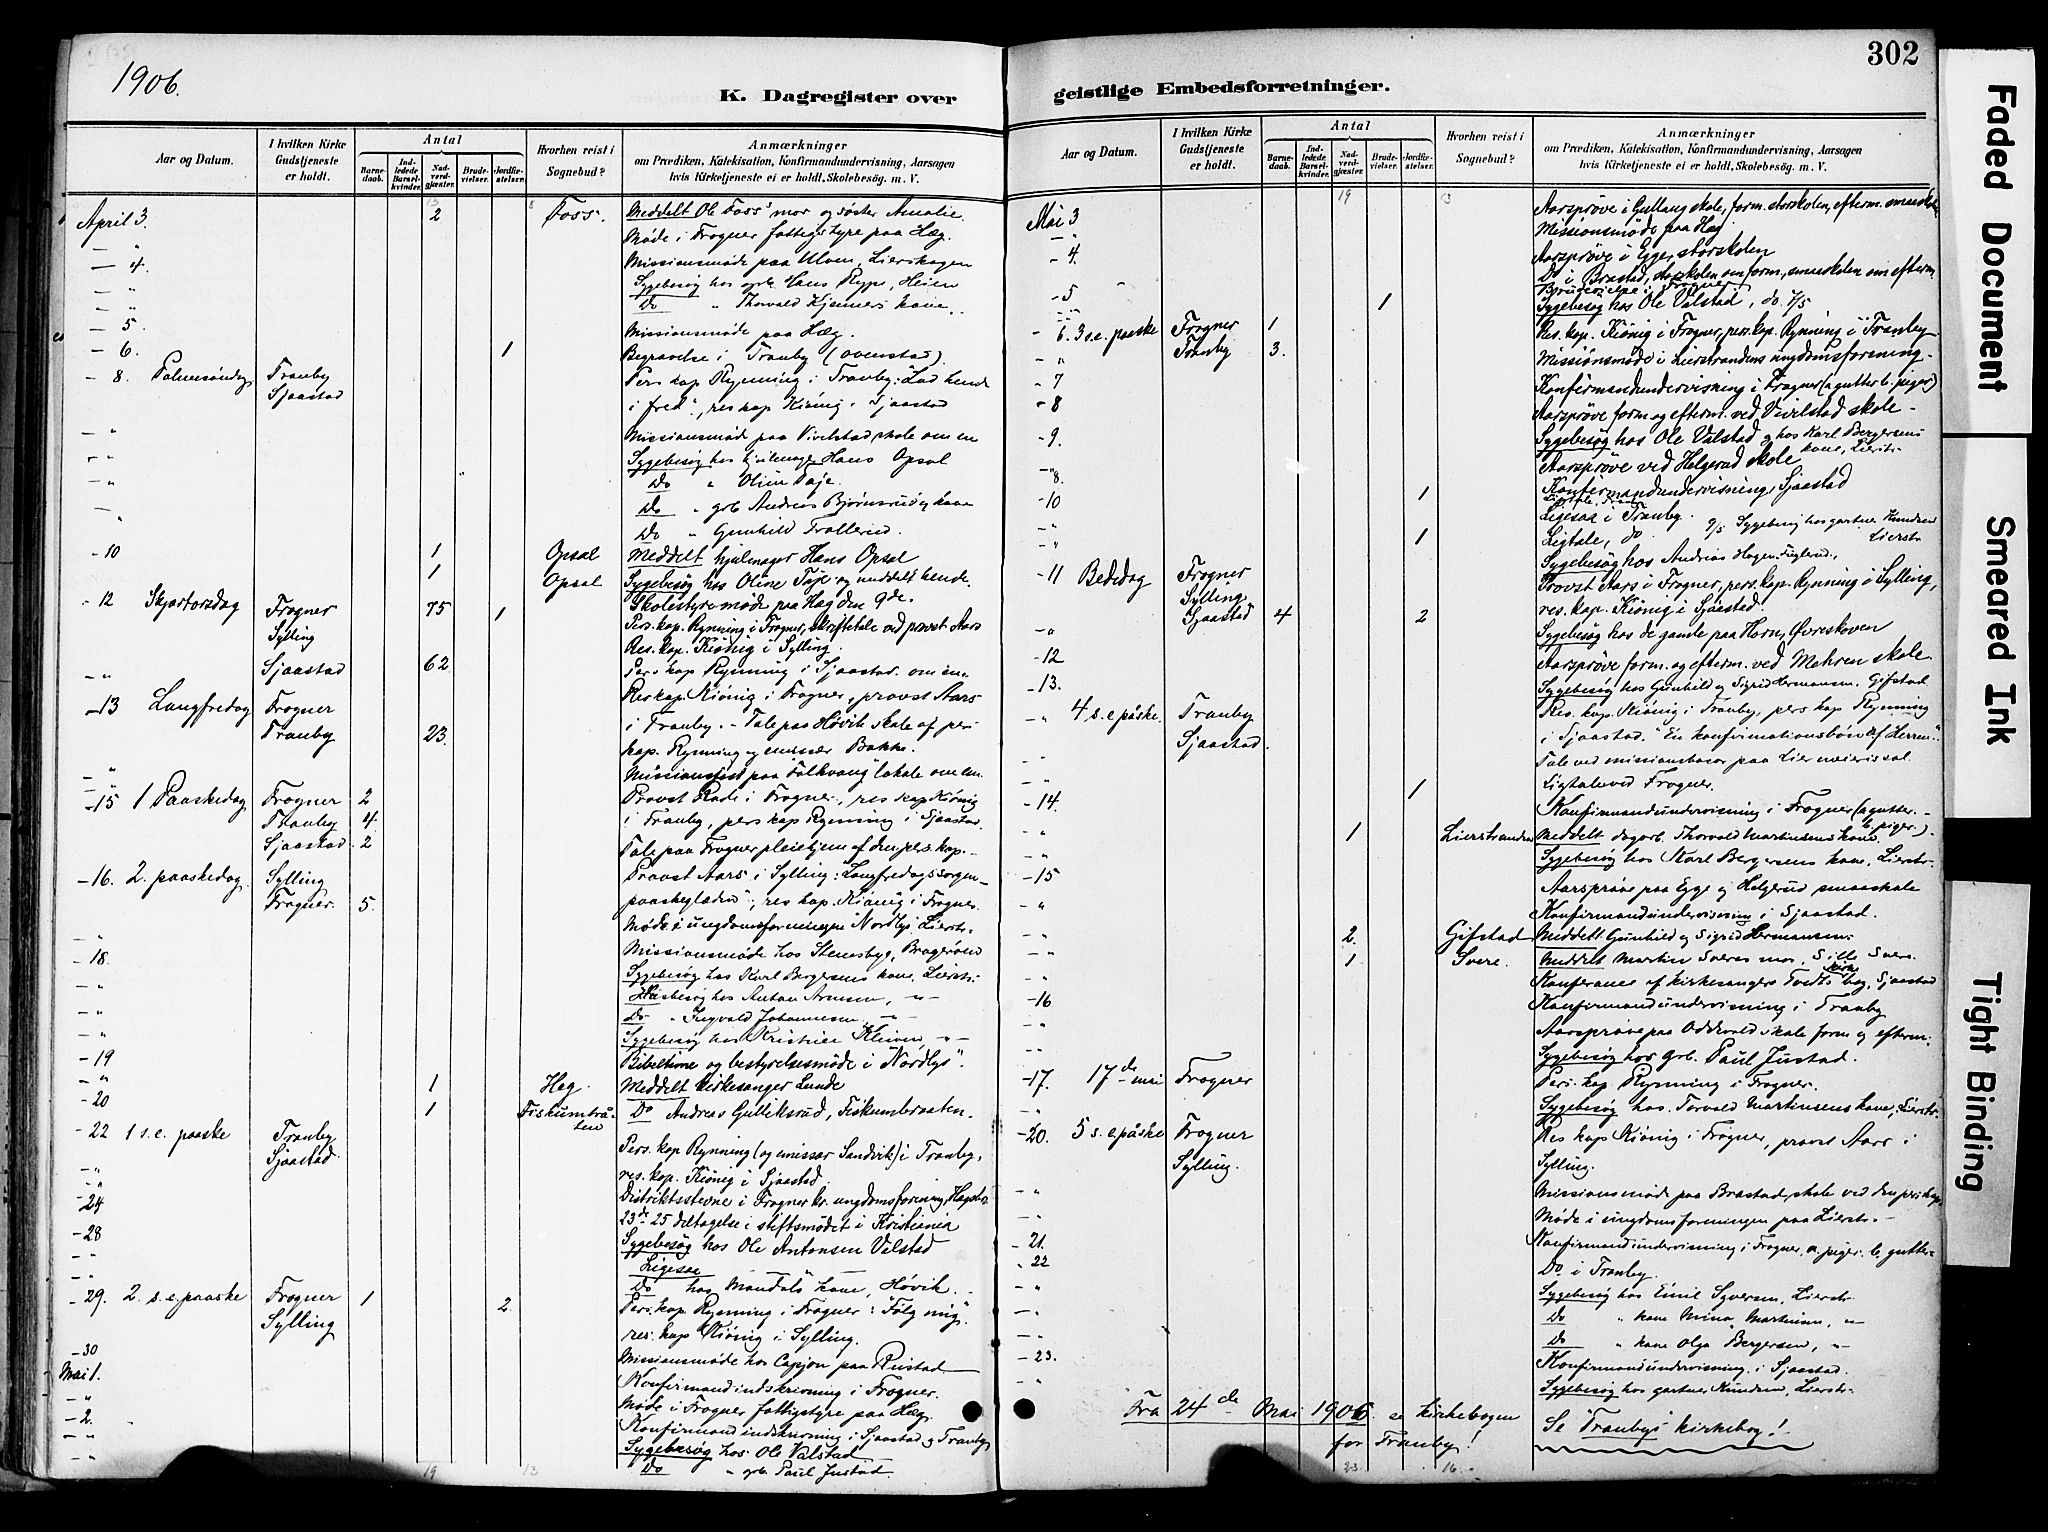 1906.
302
K. Dagregister over
geistlige Embedsforretninger.
Aar og Datum.
I hvilken Kirke Gudstjeneste er holdt.
Antal
Barnedaab.
Indledede Barselkvinder.
Nadverdgjæster.
Brudevielser.
Jordfæstelser.
Hvorhen reist i Sognebud?
Anmærkninger
om Prædiken, Katekisation, Konfirmandundervisning, Aarsagen
hvis Kirketjeneste ei er holdt, Skolebesøg. m. V.
April 3. 2 Foss. Meddelt Ole Foss' mor og søster Amalie.
— " Møde i Frogner fattigstyre paa Hæg.
— 4. Missionsmøde paa Ulven, Lierskogen
— " Sygebesøg hos grb. Hans Rype, Heien
— " Do " Thorvald Kjenners kone
— 5. Missionsmøde paa Hæg.
— 6. 1 Begravelse i Tranby (Ovenstad).
— 8. Palmesøndag Tranby Pers. kap. Rynning i Tranby: "Lad hende
Sjaastad i fred"., res. kap. Kiønig i Sjaastad
— " Missionsmøde paa Vivelstad skole om em
— " Sygebesøg hos hjulmager Hans Opsal
— " Do " Oline Paje.
— " Do " grb Andreas Bjørnsrud og kone
" Do " Gunhild Trollerud.
— 10 1 Opsal Meddelt hjulmager Hans Opsal
1 Opsal Sygebesøg hos Oline Taje og meddelt hende.
Skolestyremøde paa Hæg den 9de.
— 12 Skjærtorsdag Frogner 75 1 Pers. kap. Rynning i Frogner, skriftetale ved provst Aars
Sylling Res. kap. Kiønig i Sylling.
— " Sjaastad 62 Pers kap Rynning i Sjaastad om em
— 13 Langfredag Frogner Res kap. Kiønig i Frogner, provst Aars
Tranby 23. i Tranby. – Tale paa Høvik skole af pers
kap. Rynning og emissær Bakke.
— " Missionsfest paa "Folkvang" lokale om em.
— 15 1 Paaskedag Frogner 2 Provst Rode i Frogner, res kap Kiønig
Tranby 4. i Tranby, pers kap Rynning i Sjaastad.
Sjaastad 2 Tale paa Frogner pleiehjem af den pers. kap.
— 16. 2. paaskedag Sylling Provst Aars i Sylling: Langfredagssorgen –
Frogner. 5. paaskeglæden"; res kap. Kiønig i Frogner.
— " Møde i ungdomsforeningen Nordlys, Lierstr.
— 18. Missionsmøde hos Stensbye, Bragerøen
— " Sygebesøg hos Karl Bergersens kone, Lierstr.
— " Husbesøg hos Anton Arnesen, — " —
— " Do " Ingvald Johannesen — " —
— " Sygebesøg hos Kristine Kleiven, — " —
— 19 Bibeltime og bestyrelsesmøde i "Nordlys".
— " 1 Heg. Meddelt kirkesanger Lunde
— 20 1 Fiskumbråten Do Andreas Gulliksrud, Fiskumbraaten.
— 22 1 s. e. paaske Tranby Pers. kap Rynning (og emissær Sandvik) i Tranby,
Sjaastad. res. kap. Kiønig i Sjaastad.
— 24 Distriktsstevne i Frogner kr. ungdomsforening, Hægstr.
23de–25 deltagelse i stiftsmødet i Kristiania
— 28 Sygebesøg hos Ole Antonsen Valstad
— " Ligesaa
— " Do hos Mandals kone, Høvik.
— 29. 2. s. e. paaske Frogner 1 2. Pers. kap. Rynning i Frogner: "Følg mig".
Sylling res. kap Kiønig i Sylling.
— 30 Missionsmøde hos Capjon paa Rustad
Mai 1. Konfirmandindskrivning i Frogner.
— " Møde i Frogner fattigstyre paa Hæg.
— 2. Konfirmandindskrivning i Sjaastad og Tranby
— " Sygebesøg hos Ole Valstad
— " Do " grb. Paul Justad.
19 13
Aar og Datum.
I hvilken Kirke Gudstjeneste er holdt.
Antal
Barnedaab.
Indledede Barselkvinder.
Nadverdgjæster.
Brudevielser.
Jordfæstelser.
Hvorhen reist i Sognebud?
Anmærkninger
om Prædiken, Katekisation, Konfirmandundervisning, Aarsagen
hvis Kirketjeneste ei er holdt, Skolebesøg. m. V.
19 13
Mai 3 Aarsprøve i Gullaug skole, form. storskolen, efterm. smaaskolen
— " Missionsmøde paa Hæg
— 4. Aarsprøve i Egge, storskolen
Do i Brastad, storskolen om form, smaaskolen om efterm.
— 5 1 Brudevielse i Frogner
Sygebesøg hos Ole Valstad, do. 7/5
— 6. 3 s. e. paaske Frogner 1 Res. kap. Kiønig i Frogner, pers. kap. Rynning i Tranby
— " Tranby 3. Missionsmøde i Lierstrandens ungdomsforening
— 7 Konfirmandundervisning i Frogner (a gutter b. piger)
— 8 Aarsprøve form og efterm. ved Vivelstad skole –
— 9. Sygebesøg hos Ole Valstad og hos Karl Bergersens
kone, Lierstr.
— " Aarsprøve ved Helgerud skole
— 8. Konfirmandundervisning, Sjaastad
— 10 1 Ligesaa i Tranby. 9/5 Sygebesøg hos gartner Knudsen
— " 1 Ligtale, do. Lierstr.
— " Sygebesøg hos Andreas Hagen, Fuglerud,
— 11 Bededag Frogner Provst Aars i Frogner, pers. kap. Rynning i Sylling,
Sylling res. kap. Kiønig i Sjaastad.
— " Sjaastad 4 2 Sygebesøg hos de gamle paa Horn, Øvreskoven
— 12 Aarsprøve form. og efterm. ved Mehren skole.
— 13. Sygebesøg hos Gunhild og Sigrid Hermansen, Gifstad
— " 4 s. e påske. Tranby Res. kap. Kiønig i Tranby, pers kap Rynning
Sjaastad. i Sjaastad. "En konfirmationsbøn af Herren".
— " Tale ved missionsbasar paa Lier meieris sal.
— " 1 Ligtale ved Frogner.
— 14. Konfirmandundervisning i Frogner (a gutter –
b. piger).
— " 1 Lierstranden Meddelt dagarb. Thorvald Martinsens kone
— " Sygebesøg hos Karl Bergersens kone, Lierstr.
— 15 Aarsprøve paa Egge og Helgerud smaaskole
— " Konfirmandundervisning i Sjaastad.
— " 2. Gifstad Meddelt Gunhild og Sigrid Hermansen.
— " 1 Svere. Meddelt Martin Sveres mor, Sille Svere.
— " Konferance af kirkesanger Tvedts kirkebog, Sjaastad
— 16 Konfirmandundervisning i Tranby
— " Aarsprøve paa Oddevald skole form og efterm.
— " Sygebesøg hos grb. Paul Justad.
— 17. 17de mai Frogner Pers. kap. Rynning i Frogner.
— " Sygebesøg hos Torvald Martinsens kone, Lierstr.
— 20. 5 s. e. påske Frogner Res kap Kiønig i Frogner, provst Aars i
Sylling. Sylling.
— " Missionsmøde paa Brastad skole ved den pers kap.
— " Møde i ungdomsforeningen paa Lierstr. –
— 21. Konfirmandundervisning i Frogner, a. piger. b. gutter –
— 22 Do. i Tranby.
— " Sygebesøg hos Emil Syversen, Lierstr.
— " Do " kone Mina Martinsen, — " —
— " Do " kone Olga Bergersen, — " —
— 23. Konfirmandundervisning i Sjaastad.
— " Sygebesøg hos gartner Knudsen, Lierstr.
Fra 24de Mai 1906. se kirkebogen
for Tranby!
Se "Tranbys" kirkebog!
23 16.
Faded Document
Smeared Ink
Tight Binding